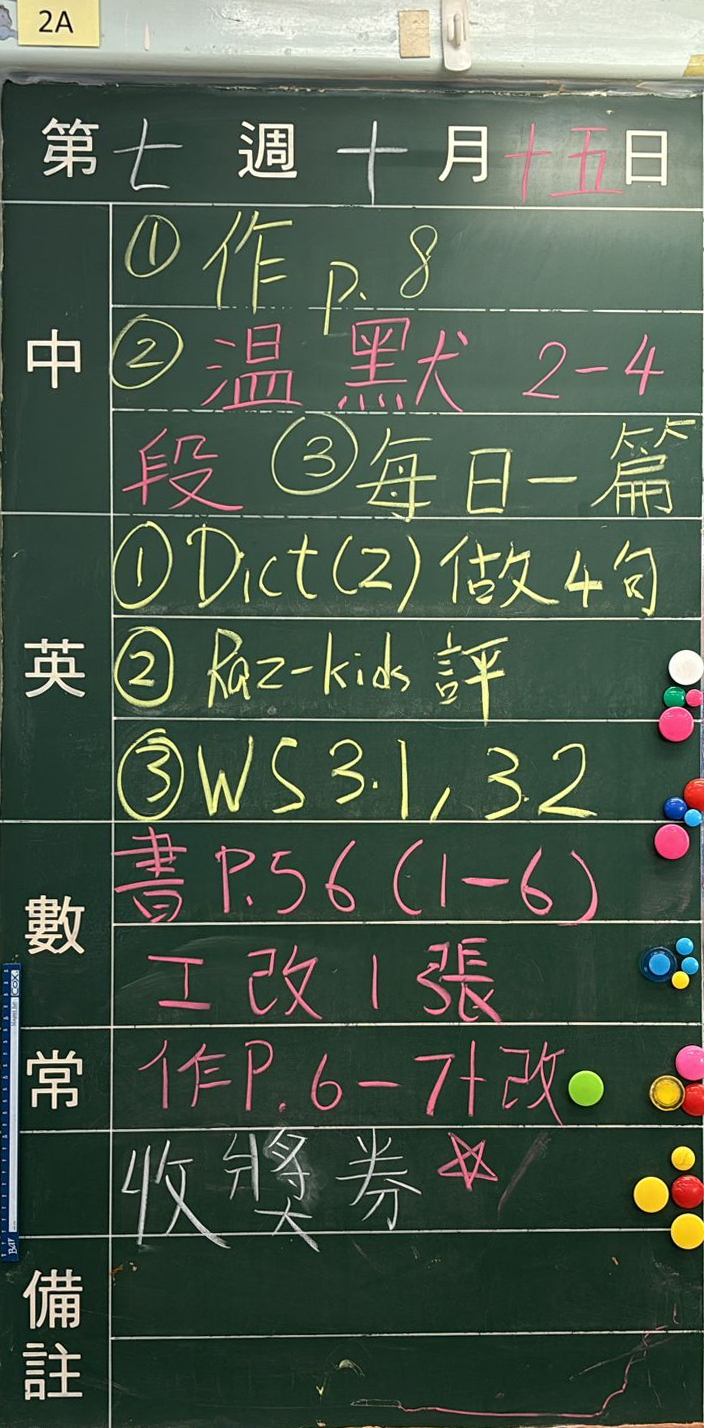 2A
第七週十月十五日
中
① 作 p. 8
② 温 默 2-4
段 ③ 每日一篇
英
① Dict(2) 做4句
② Raz-kids 評
③ WS 3.1, 3.2
數
書 P.56 (1-6)
工 改 1 張
常
作P.6-7+改
收 獎 券 ☆
備註